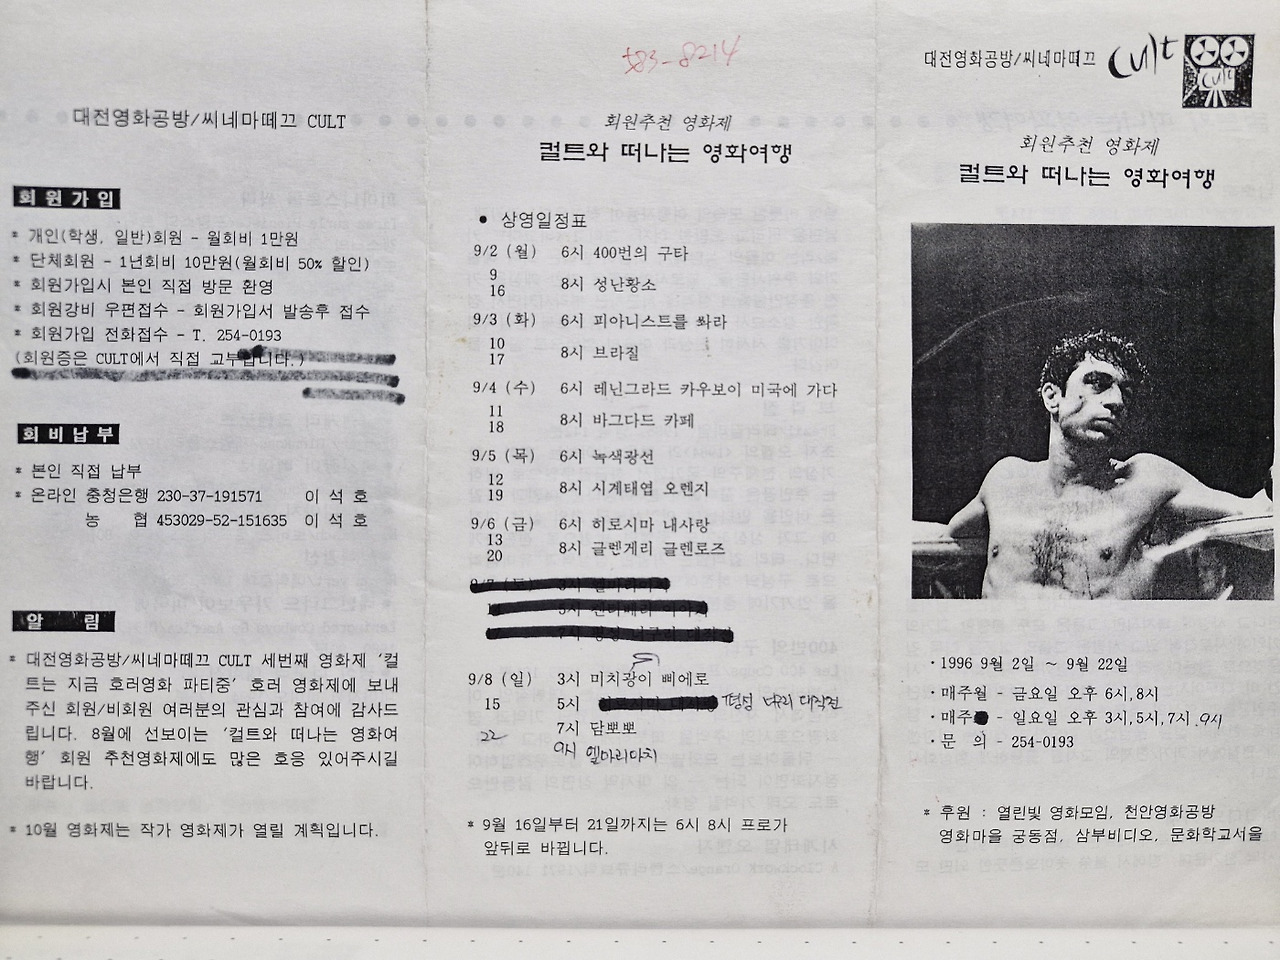 대전영화공방/씨네마떼끄 CULT
회원가입
* 개인(학생, 일반)회원 - 월회비 1만원
* 단체회원 - 1년회비 10만원(월회비 50% 할인)
* 회원가입시 본인 직접 방문 환영
* 회원강비 우편접수 - 회원가입서 발송후 접수
* 회원가입 전화접수 - T. 254-0193
(회원증은 CULT에서 직접 교부입니다.)
회비납부
* 본인 직접 납부
* 온라인 충청은행 230-37-191571 이 석 호
농 협 453029-52-151635 이 석 호
알 림
* 대전영화공방/씨네마떼끄 CULT 세번째 영화제 '컬
트는 지금 호러영화 파티중' 호러 영화제에 보내
주신 회원/비회원 여러분의 관심과 참여에 감사드
립니다. 8월에 선보이는 '컬트와 떠나는 영화여
행' 회원 추천영화제에도 많은 호응 있어주시길
바랍니다.
* 10월 영화제는 작가 영화제가 열릴 계획입니다.
583-8214
회원추천 영화제
컬트와 떠나는 영화여행
• 상영일정표
9/2 (월) 6시 400번의 구타
9
16 8시 성난황소
9/3 (화) 6시 피아니스트를 쏴라
10
17 8시 브라질
9/4 (수) 6시 레닌그라드 카우보이 미국에 가다
11
18 8시 바그다드 카페
9/5 (목) 6시 녹색광선
12
19 8시 시계태엽 오렌지
9/6 (금) 6시 히로시마 내사랑
13
20 8시 글렌게리 글렌로즈
9/8 (일) 3시 미치광이 삐에로
15 5시 평성 너구리 대작전
22 7시 담뽀뽀
9시 엘마리아치
* 9월 16일부터 21일까지는 6시 8시 프로가
앞뒤로 바뀝니다.
대전영화공방/씨네마떼끄 Cult
Cult
회원추천 영화제
컬트와 떠나는 영화여행
·1996 9월 2일 ~ 9월 22일
·매주월 - 금요일 오후 6시,8시
·매주 - 일요일 오후 3시,5시,7시,9시
·문 의 - 254-0193
* 후원 : 열린빛 영화모임, 천안영화공방
영화마을 궁동점, 삼부비디오, 문화학교서울